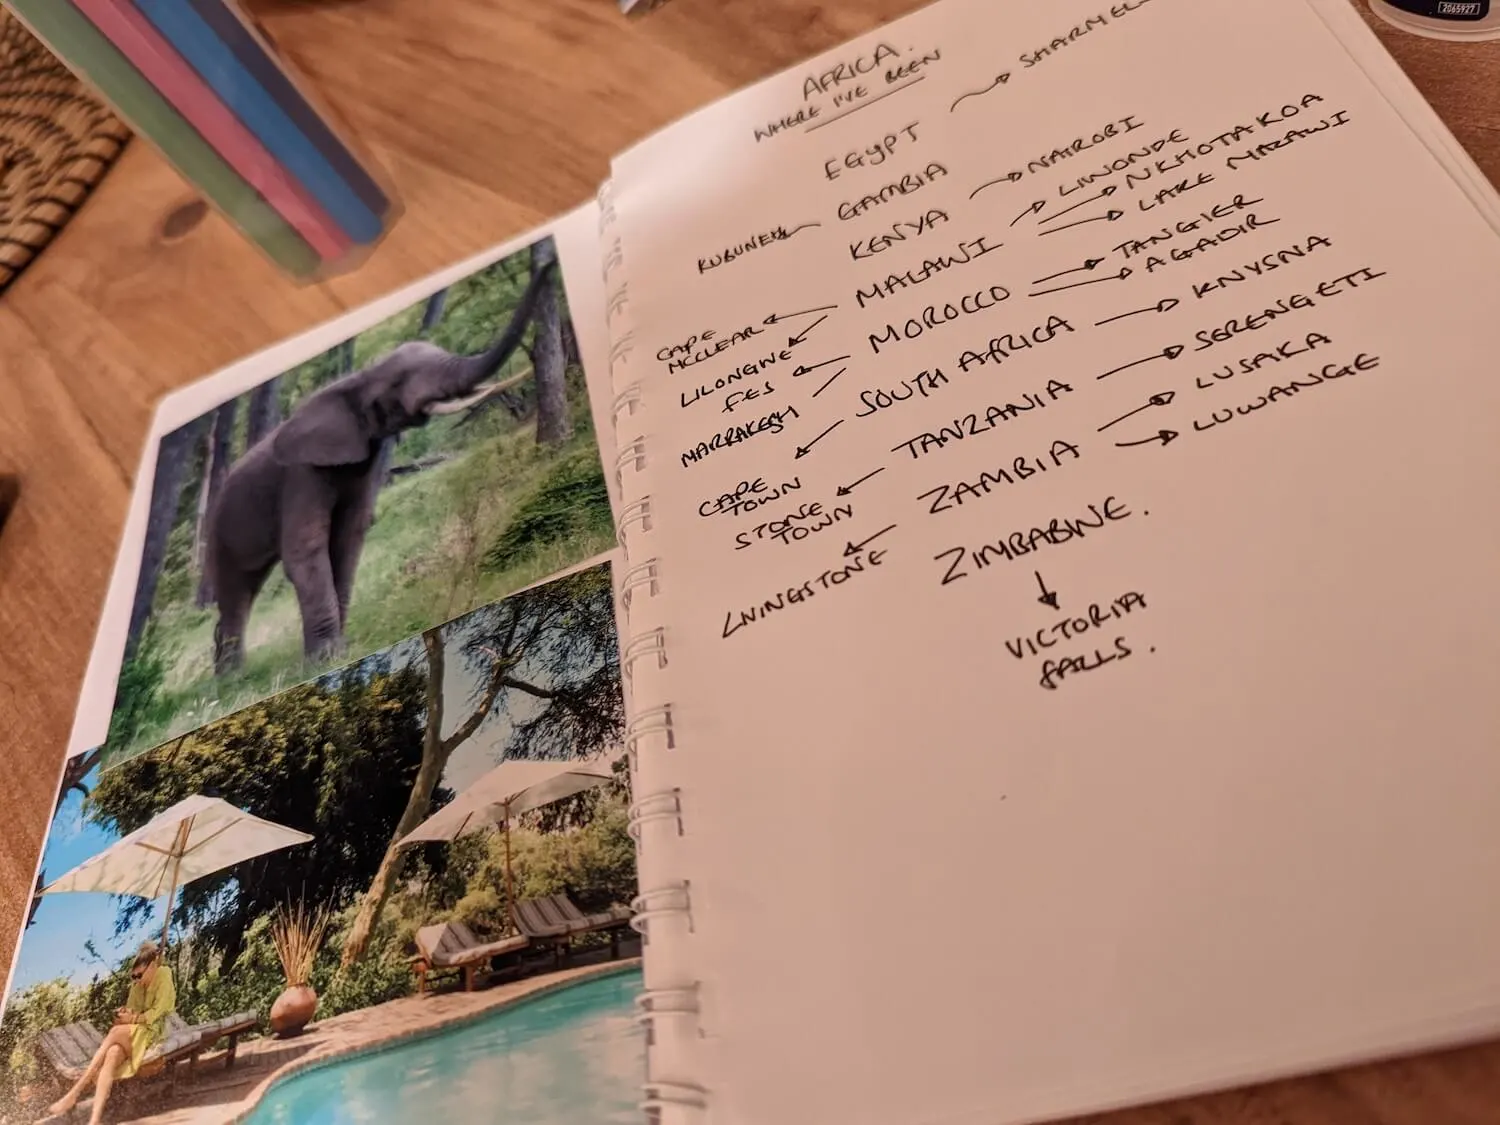 2065927
AFRICA.
WHERE I'VE BEEN
EGYPT → SHARM EL
KUBUNEH ← GAMBIA
KENYA → NAIROBI
MALAWI → LIWONDE
→ NKHOTAKOA
→ LAKE MALAWI
CAPE
MCCLEAR
LILONGWE
MOROCCO → TANGIER
→ AGADIR
FES
MARRAKESH
SOUTH AFRICA → KNYSNA
CAPE
TOWN
TANZANIA → SERENGETI
STONE
TOWN
ZAMBIA → LUSAKA
→ LUWANGE
LIVINGSTONE
ZIMBABWE.
VICTORIA
FALLS.